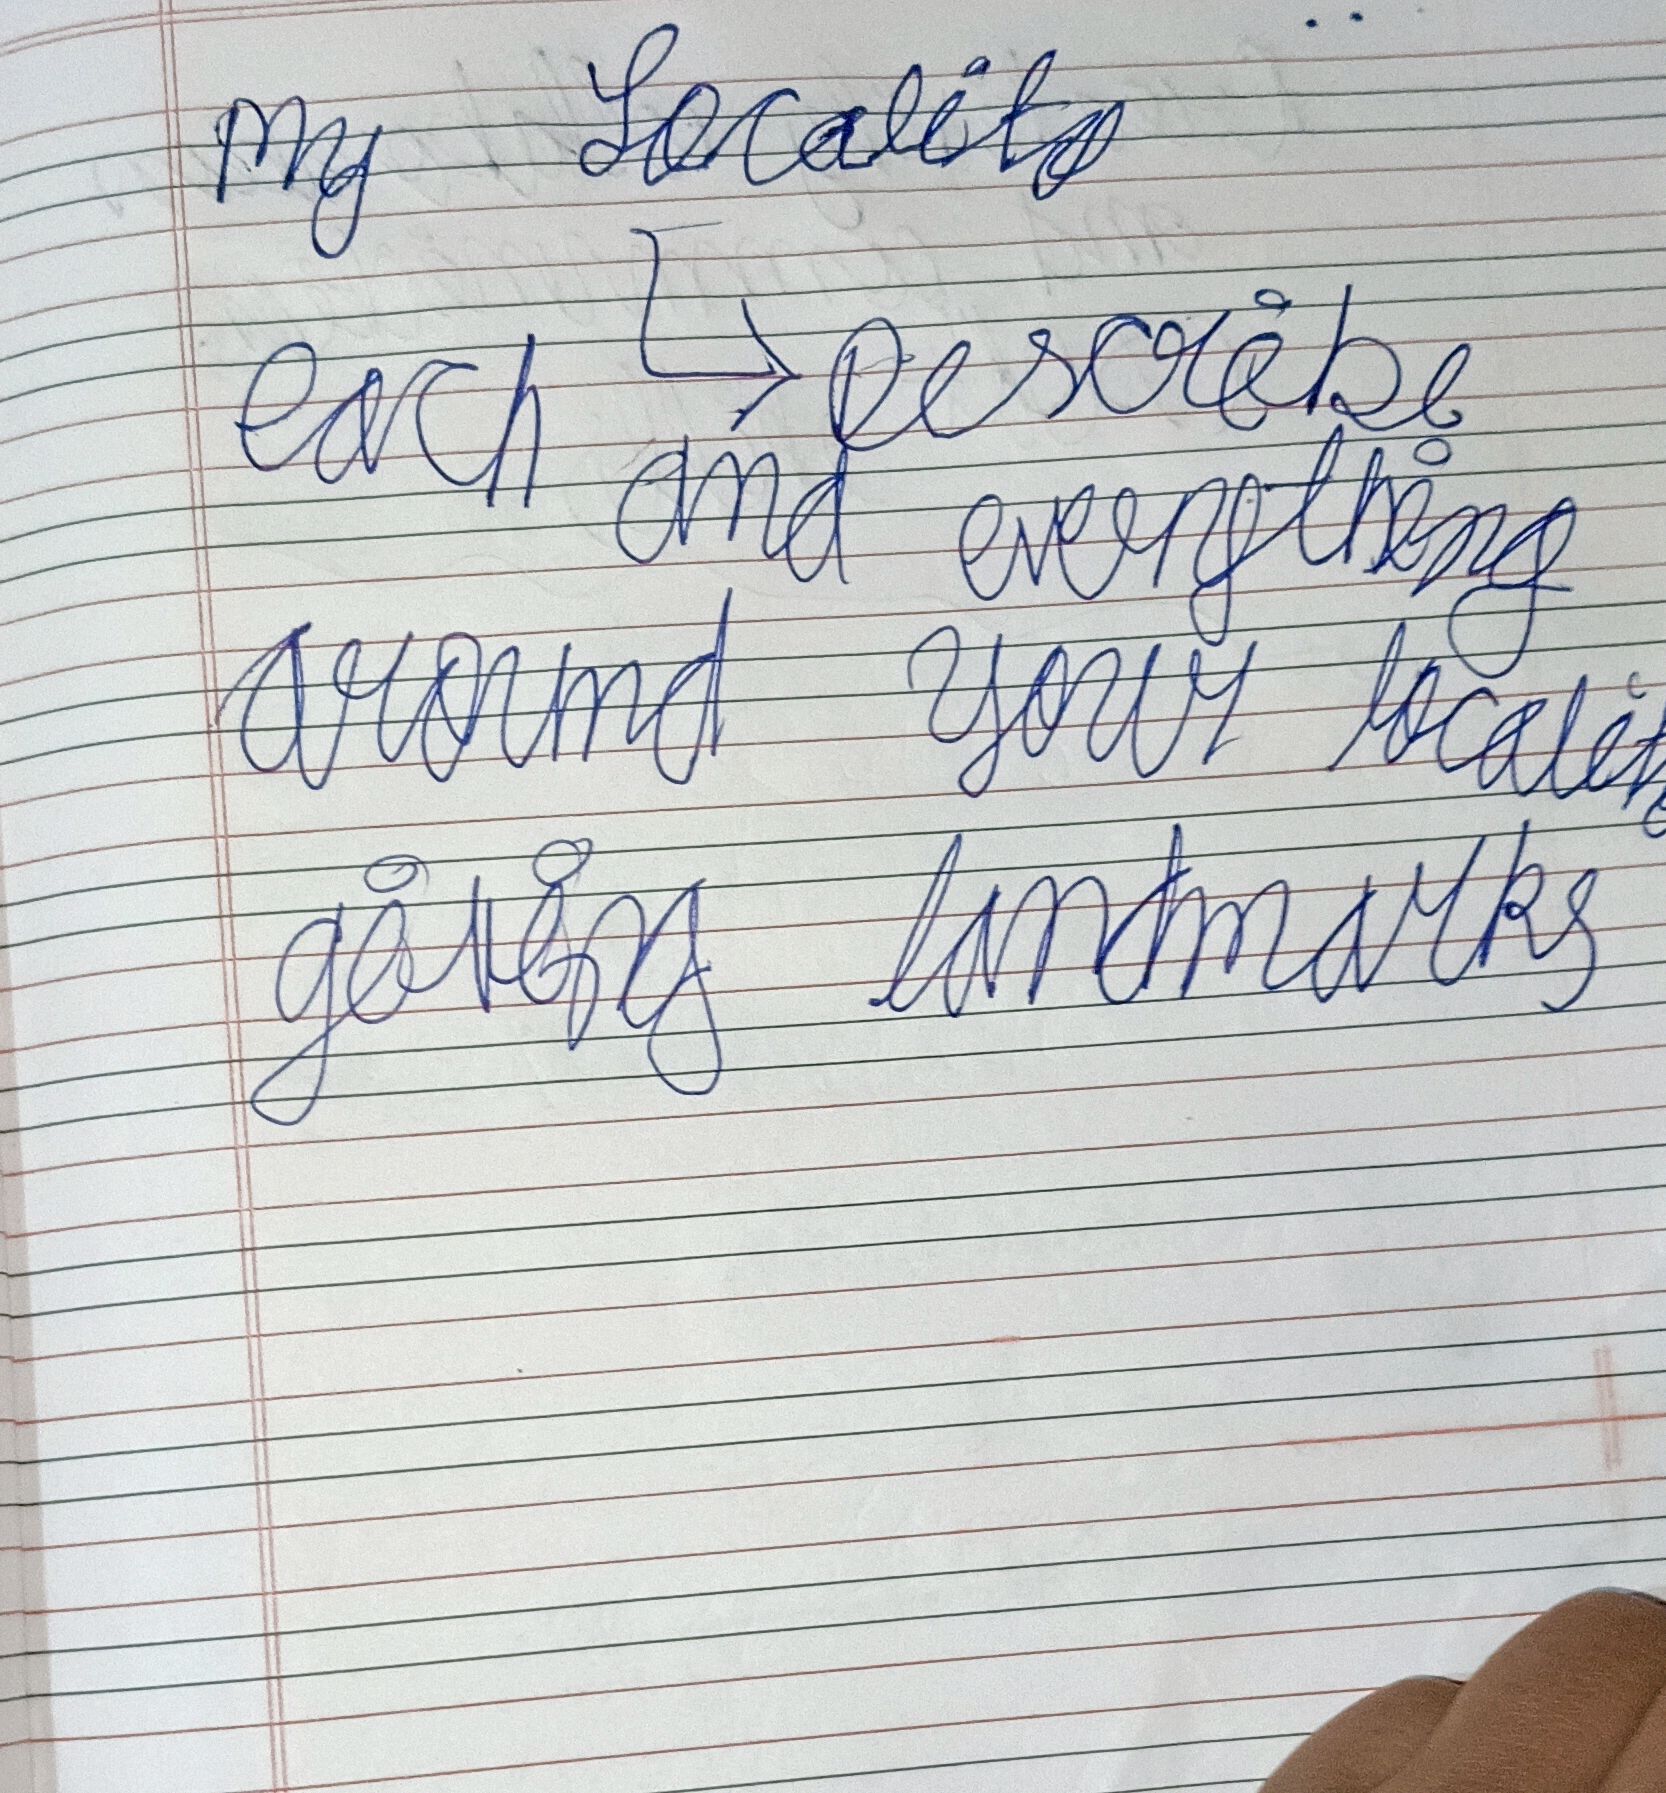 My Locality
↳ Describe
each and everything
around your locality
giving landmarks